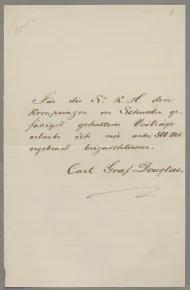 Für die S. K. H. dem
Kronprinzen von Schweden ge-
fälligst gehaltene Vorträge
erlaube ich mir anbei 300 Mk
ergebenst beizuschliessen.
Carl Graf Douglas.